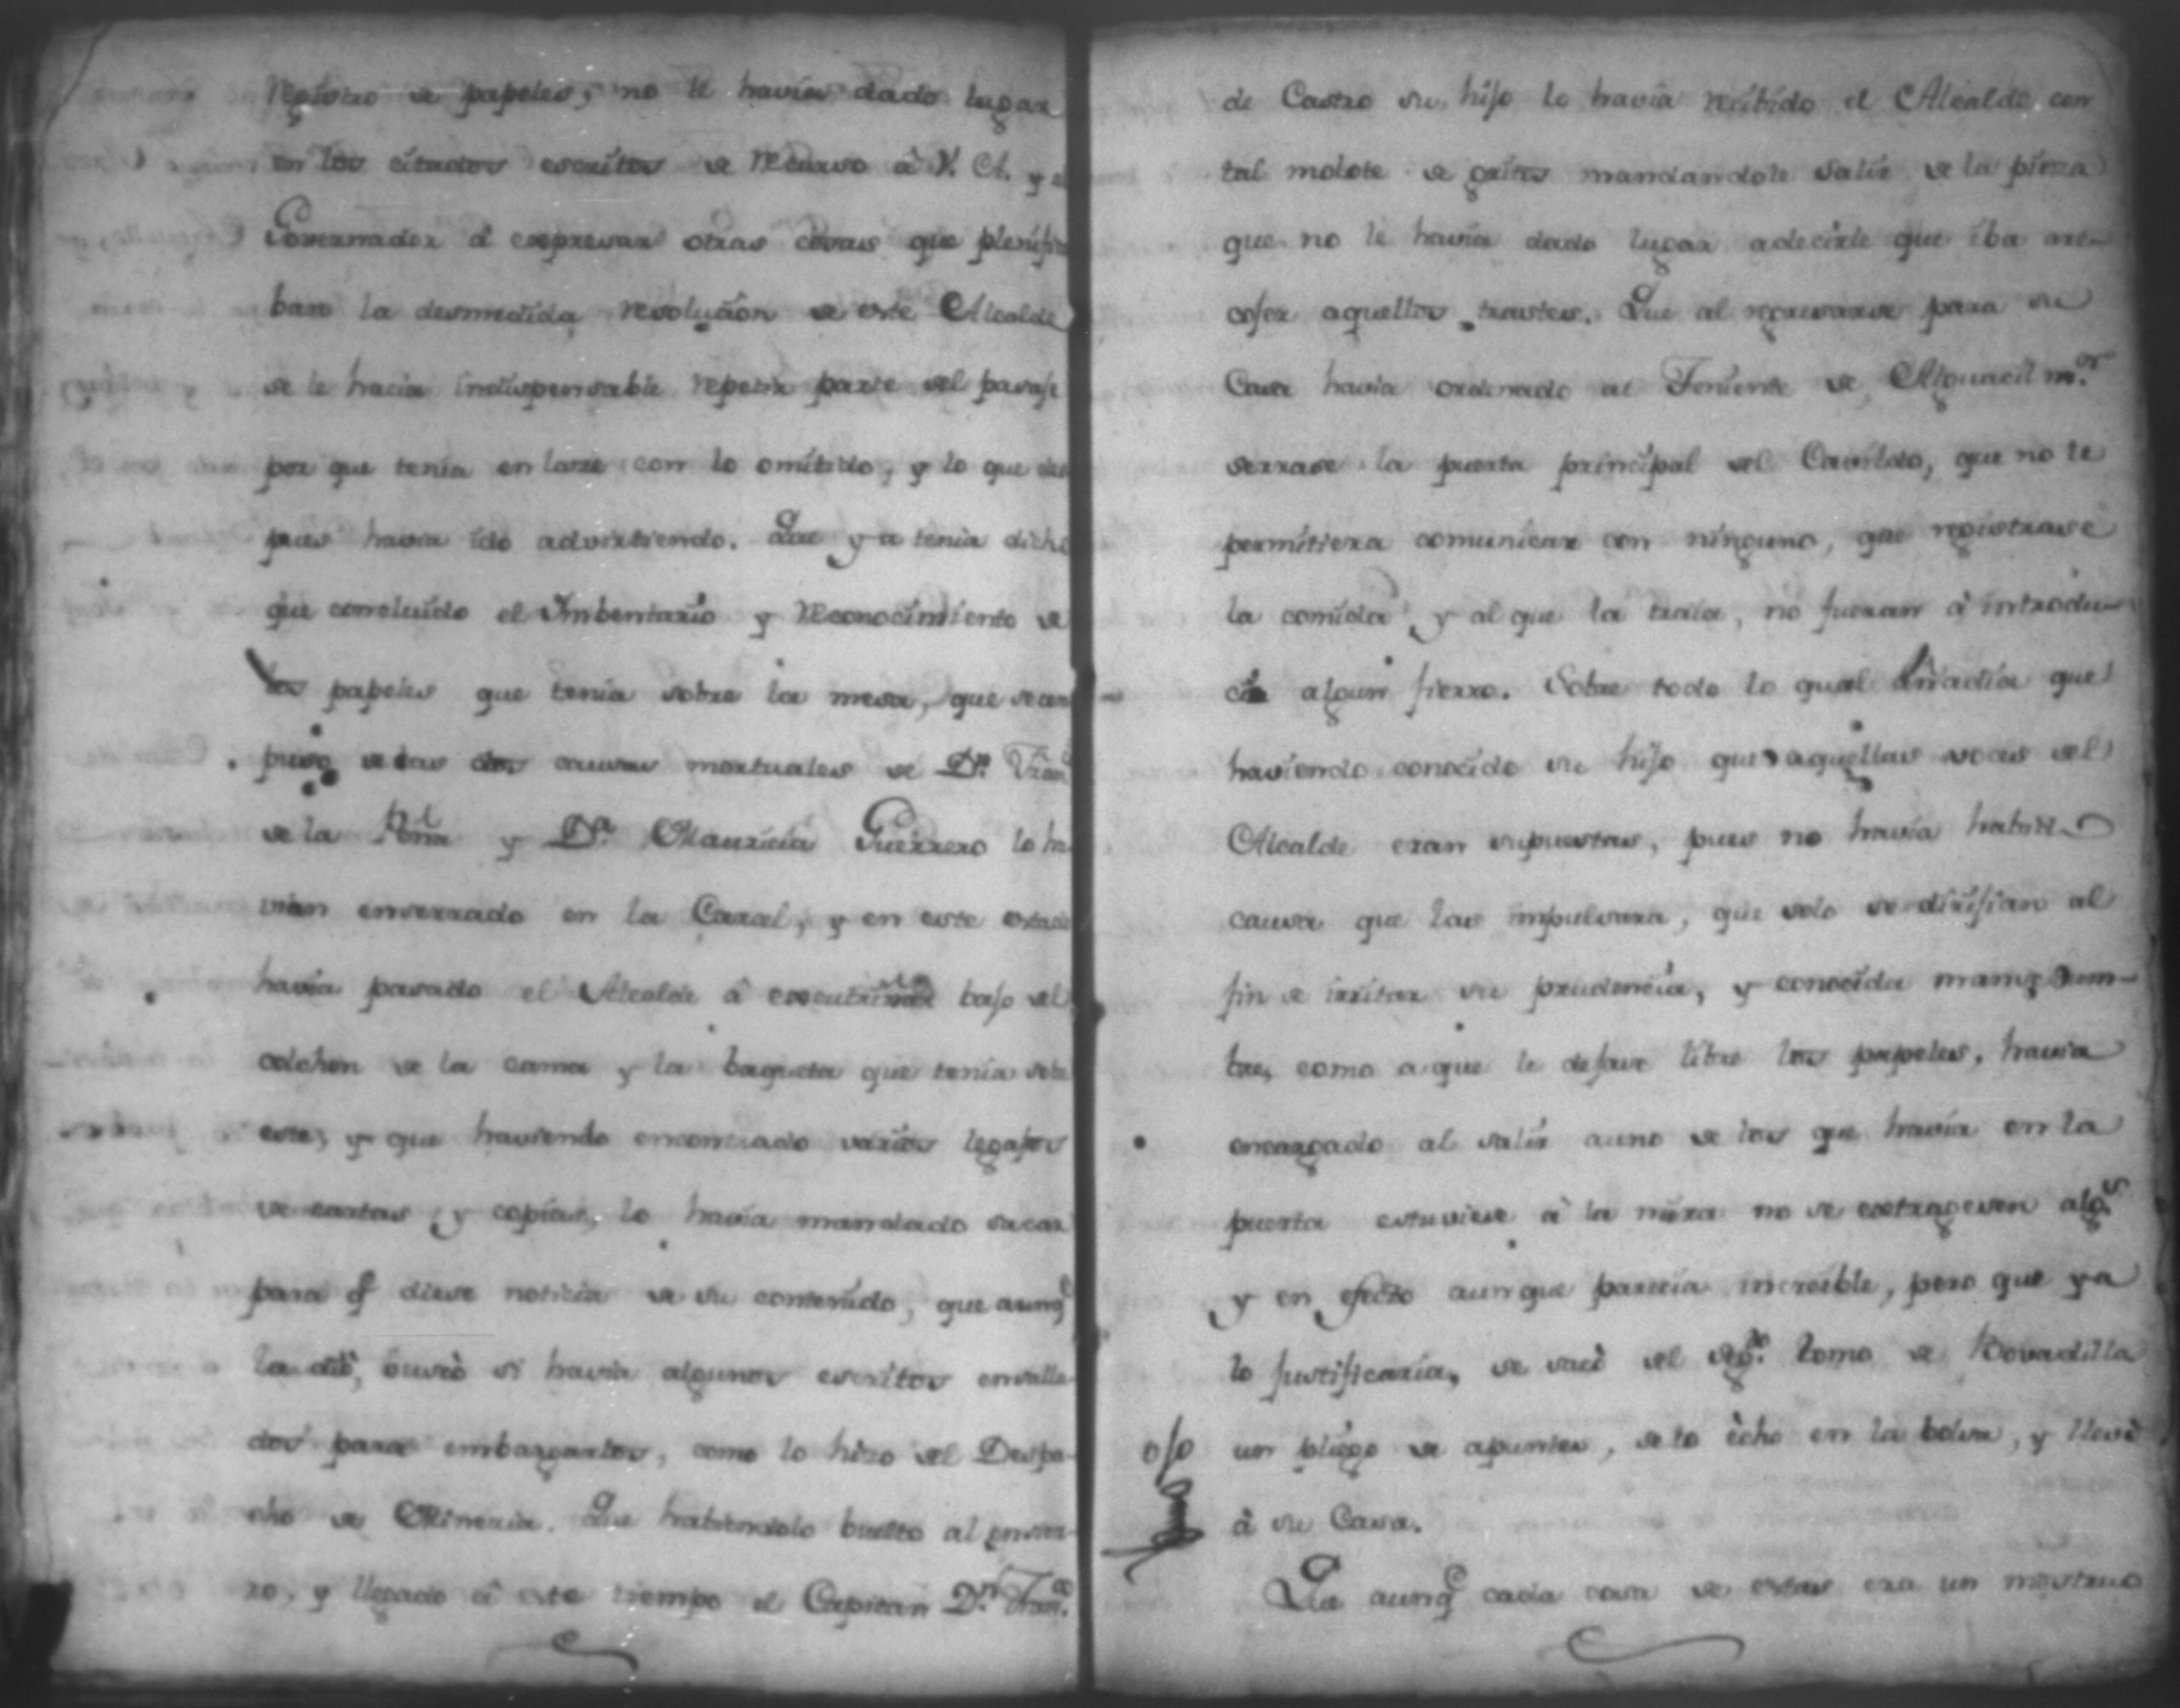 registro de papeles, no le havía dado lugar
en los citados escritos de recurso â V. A. y al
Governador â expresar otras cosas que
ban la desmedida resolucion de este Alcalde
se le hacia indispensable repetir parte del pasaje
por que tenía enlaze con lo omitido, y lo que des
pues havia ido advirtiendo. Que ya tenia dicho
que concluido el Imbentario y reconocimiento de
los papeles que tenía sobre la mesa, que se com
puso de las dos causas mortuales de Dn. Fran.co
de la Peña y Da. Mauricia Guerrero lo ha
vian enserrado en la Carcel, y en este estado
havia pasado el Alcalde â escutriñar bajo del
colchon de la cama y la baqueta que tenía sobre
este, y que haviendo encontrado varios legajos
de cartas y copias, lo havía mandado sacar
para q̃ diese noticia de su contenido, que aunq̃
la diò, buscò si havia algunos escritos
dos para embargarlos, como lo hizo del Despa-
cho de Mineria. Que habiendolo buelto al encier-
ro, y llegado â este tiempo el Capitan Dn. Fran.co
de Castro su hijo lo havía recibido el Alcalde con
tal molote de gritos mandandole salir de la pieza
que no le havía dado lugar a decirle que iba a re-
cojer aquellos trastes. Que al regresarse para su
Casa havía ordenado al Teniente de Alguacil m.or
serrase la puerta principal del Cavildo, que no le
permitiera comunicar con ninguno, que registrase
la comida y al que la traía, no fueran â introdu-
cir algun fierro. Sobre todo lo qual añadía que
haviendo conocido su hijo que aquellas voces del
Alcalde eran supuestas, pues no havía habido
causa que las impulsara, que solo se dirijian al
fin de irritar su prudencia, y conocida mansedum-
bre, como a que le dejase libre los papeles, havia
encargado al salir a uno de los que havía en la
puerta estuviese â la mira no se extragesen alg.s
y en efecto aunque parecía increible, pero que ya
lo justificaría, se sacò del seg.do tomo de Bovadilla
ojo un pliego de apuntes, se lo echo en la bolsa, y llevò
â su Casa.
Que aunq̃ cada cosa de estas era un monstruo